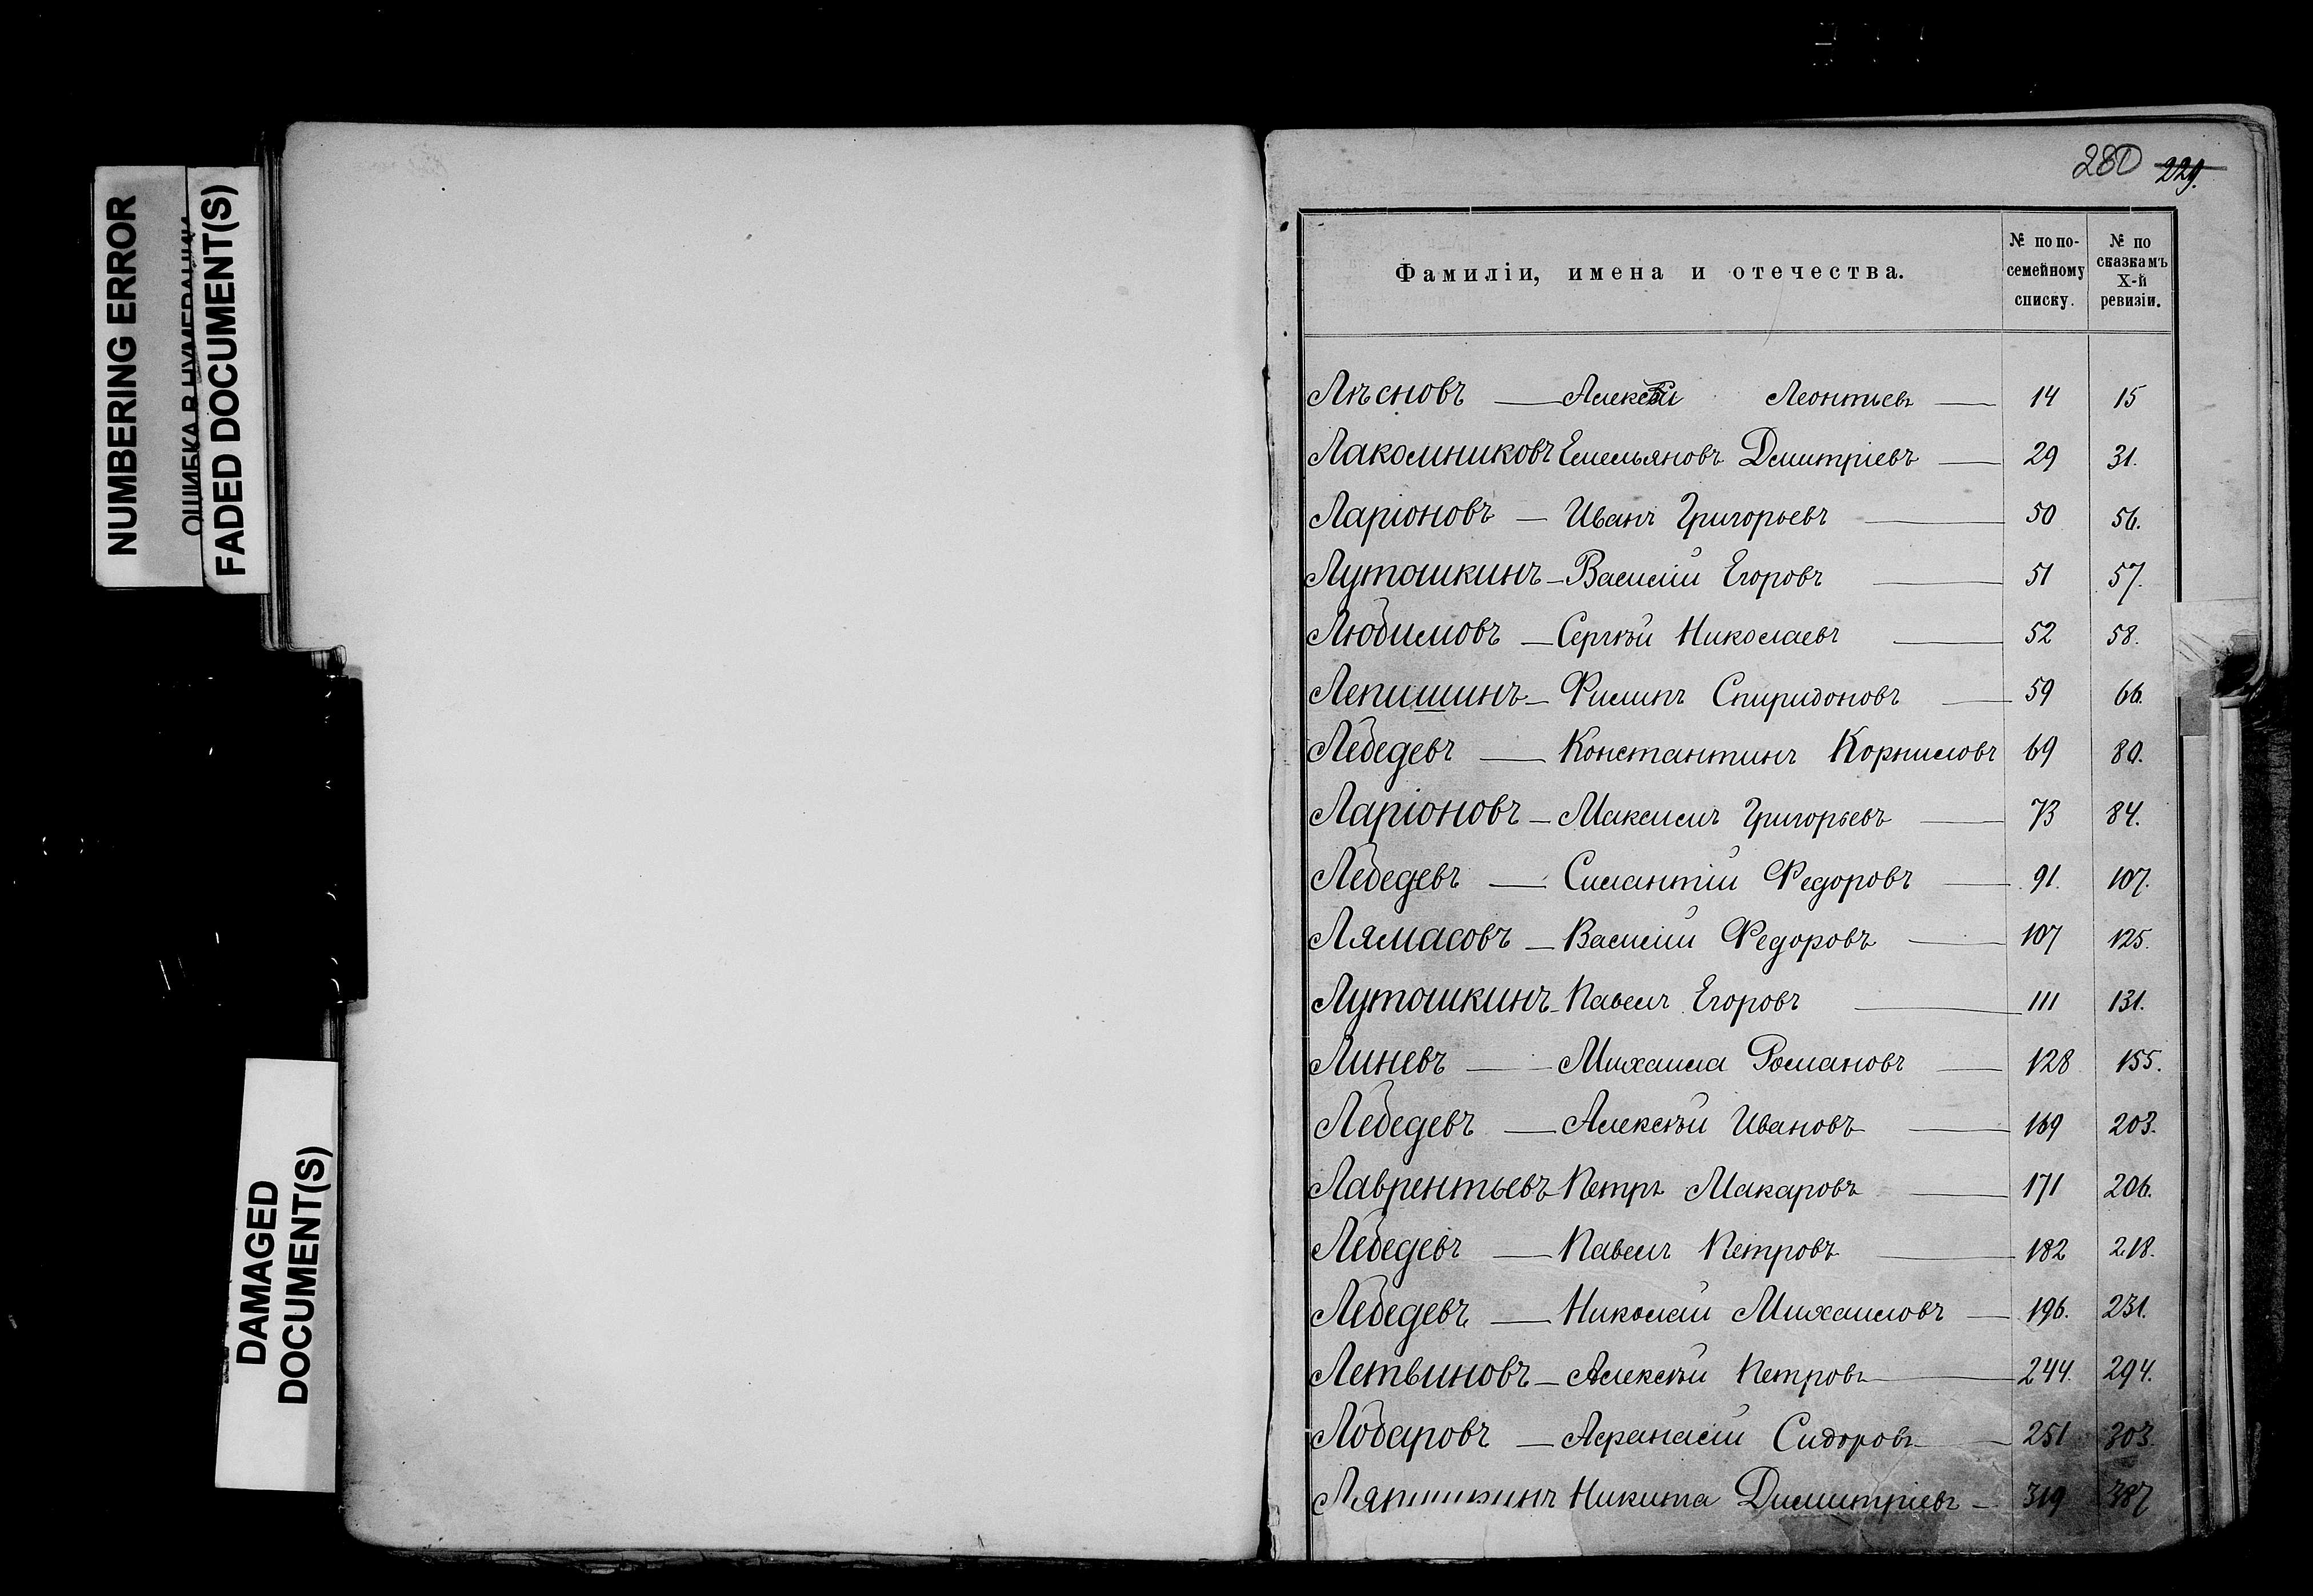 NUMBERING ERROR
ОШИБКА В НУМЕРАЦИИ
FADED DOCUMENT(S)
DAMAGED
DOCUMENT(S)
280 229.
Фамиліи, имена и отечества.
№ по по-
семейному
списку.
№ по
сказкамъ
X-й
ревизіи.
Лѣсновъ — Алексѣй Леонтьевъ — 14 15
Лакомниковъ Емельяновъ Дмитріевъ — 29 31.
Ларіоновъ — Иванъ Григорьевъ — 50 56.
Лутошкинъ — Василій Егоровъ — 51 57.
Любимовъ — Сергѣй Николаевъ — 52 58.
Лепишинъ — Филипъ Спиридоновъ — 59 66.
Лебедевъ — Константинъ Корниловъ 69 80.
Ларіоновъ — Максимъ Григорьевъ — 73 84.
Лебедевъ — Силантій Федоровъ — 91. 107.
Лямасовъ — Василій Федоровъ — 107 125.
Лутошкинъ — Павелъ Егоровъ — 111 131.
Линевъ — Михаила Романовъ — 128 155.
Лебедевъ — Алексѣй Ивановъ — 169 203.
Лаврентьевъ Петръ Макаровъ — 171 206.
Лебедевъ — Павелъ Петровъ — 182 218.
Лебедевъ — Николай Михаиловъ — 196. 231.
Летвиновъ — Алексѣй Петровъ — 244. 294.
Лобаровъ — Афанасій Сидоровъ — 251 303.
Никита Димитріевъ — 319 387